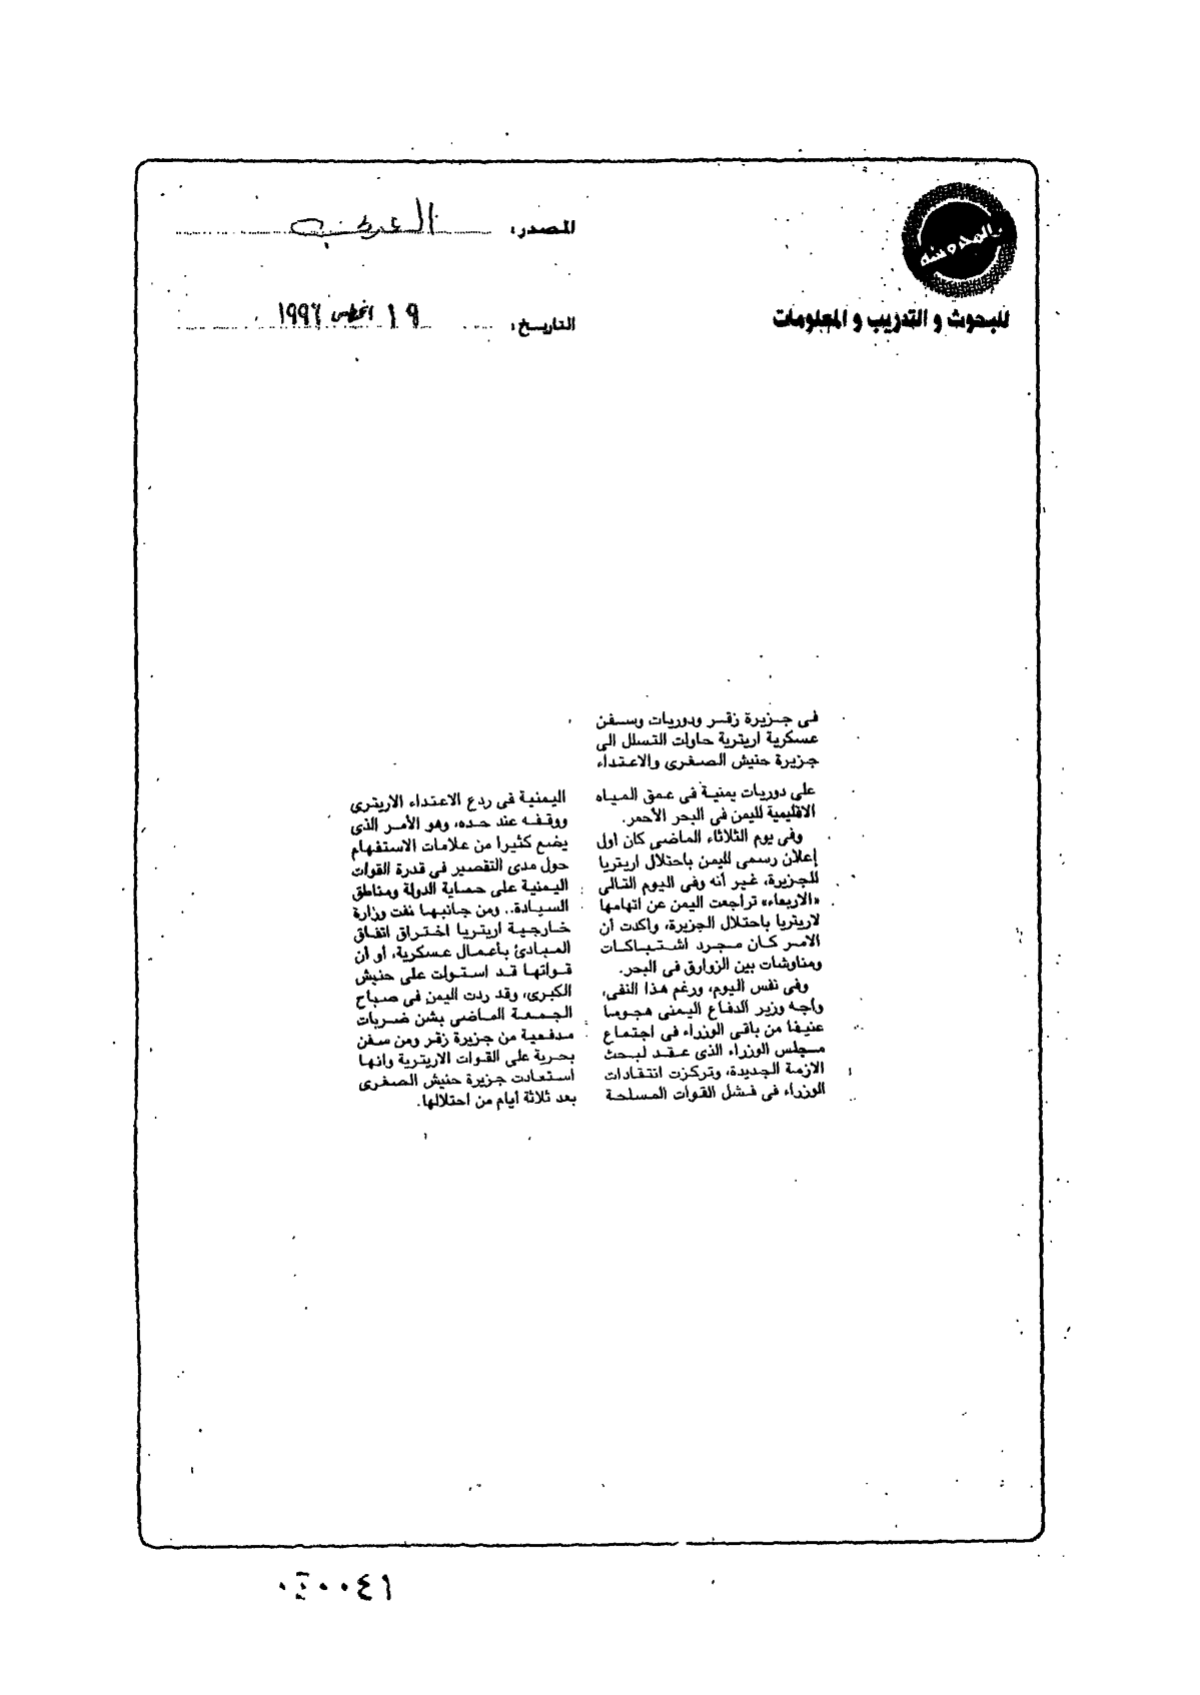 المحروسة
للبحوث و التدريب و المعلومات
المصدر: العربى
التاريخ: ١٩ اغسطس ١٩٩٦
فى جزيرة زقر ودوريات وسفن
عسكرية اريترية حاولت التسلل الى
جزيرة حنيش الصغرى والاعتداء
على دوريات يمنية فى عمق المياه
الاقليمية لليمن فى البحر الأحمر.
وفى يوم الثلاثاء الماضى كان اول
إعلان رسمى لليمن باحتلال اريتريا
للجزيرة، غير أنه وفى اليوم التالى
«الاربعاء» تراجعت اليمن عن اتهامها
لاريتريا باحتلال الجزيرة، واكدت أن
الامر كان مجرد اشتباكات
ومناوشات بين الزوارق فى البحر.
وفى نفس اليوم، ورغم هذا النفى،
واجه وزير الدفاع اليمنى هجوما
عنيفا من باقى الوزراء فى اجتماع
مجلس الوزراء الذى عقد لبحث
الازمة الجديدة، وتركزت انتقادات
الوزراء فى فشل القوات المسلحة
اليمنية فى ردع الاعتداء الاريترى
ووقفه عند حده، وهو الأمر الذى
يضع كثيرا من علامات الاستفهام
حول مدى التقصير فى قدرة القوات
اليمنية على حماية الدولة ومناطق
السيادة.. ومن جانبها نفت وزارة
خارجية اريتريا اختراق اتفاق
المبادئ بأعمال عسكرية، أو أن
قواتها قد استولت على حنيش
الكبرى، وقد ردت اليمن فى صباح
الجمعة الماضى بشن ضربات
مدفعية من جزيرة زقر ومن سفن
بحرية على القوات الاريترية وانها
استعادت جزيرة حنيش الصغرى
بعد ثلاثة أيام من احتلالها.